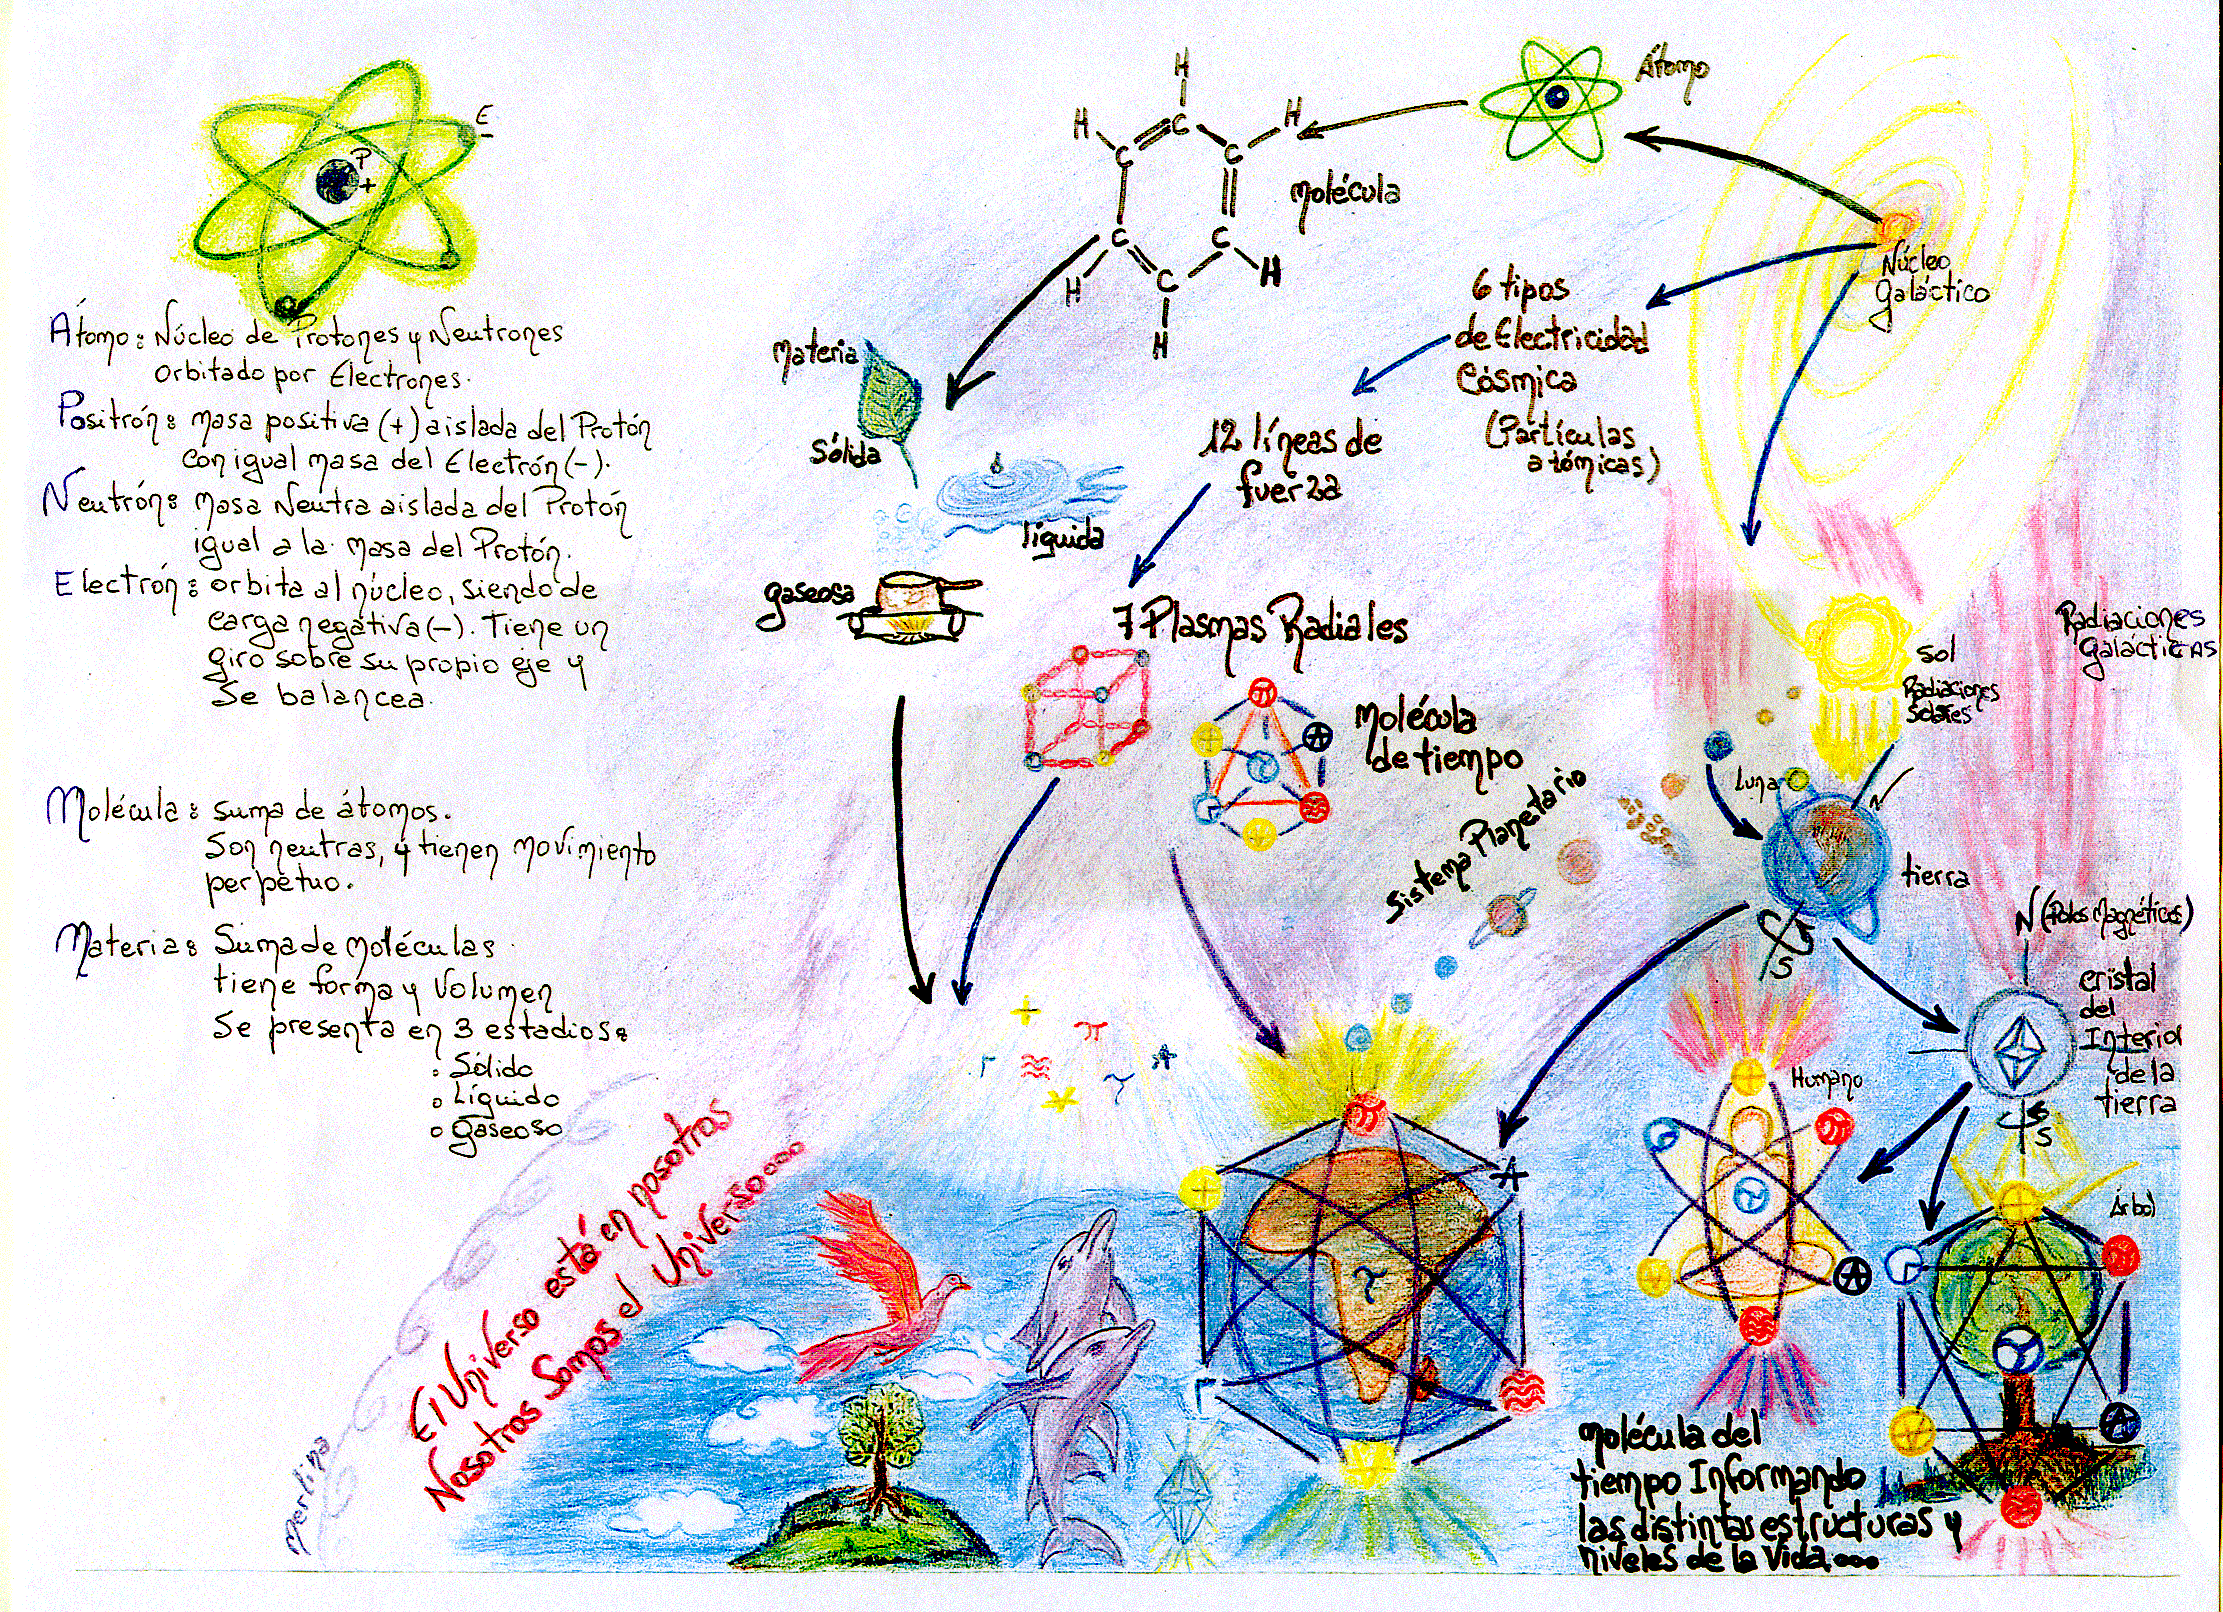 E
-
P
+
Átomo: Núcleo de Protones y Neutrones
orbitado por Electrones.
Positrón: masa positiva (+) aislada del Protón
con igual masa del Electrón (-).
Neutrón: masa Neutra aislada del Protón
igual a la masa del Protón.
Electrón: orbita al núcleo, siendo de
carga negativa (-). Tiene un
giro sobre su propio eje y
se balancea.
Molécula: suma de átomos.
Son neutras, y tienen movimiento
perpetuo.
Materia: Suma de moléculas
tiene forma y Volumen
Se presenta en 3 estadios:
Sólido
Líquido
gaseoso
H
H
C
H
C
C
C
C
H
C
H
H
Molécula
Átomo
Núcleo
Galáctico
6 tipos
de Electricidad
Cósmica
(Partículas
atómicas)
12 líneas de
fuerza
7 Plasmas Radiales
Materia
Sólida
líquida
gaseosa
Molécula
de tiempo
Sistema Planetario
Sol
Radiaciones
Solares
Radiaciones
Galácticas
Luna
N
tierra
S
N (Polos Magnéticos)
cristal
del
Interior
de la
tierra
S
Humano
Árbol
El Universo está en nosotros
Nosotros Somos el Universo....
Molécula del
tiempo Informando
las distintas estructuras y
niveles de la Vida...